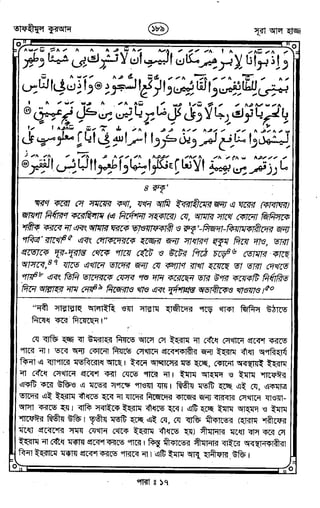 তাফহীমুল কুরআন
১৮৯
সূরা আল হাজ্জ
وَإِذْ بَوَّأْنَا لِإِبْرٰهِيْمَ مَكَانَ الْبَيْتِ أَنْ لَّا تُشْرِكْ بِيْ شَيْئًا وَّطَهِّرْ
بَيْتِيَ لِلطَّآئِفِيْنَ وَالْقَآئِمِيْنَ وَالرُّكَّعِ السُّجُوْدِ ۞ وَأَذِّنْ فِي النَّاسِ
بِالْحَجِّ يَأْتُوْكَ رِجَالًا وَّعَلٰى كُلِّ ضَامِرٍ يَّأْتِيْنَ مِنْ كُلِّ فَجٍّ عَمِيْقٍ ۞
لِّيَشْهَدُوْا مَنَافِعَ لَهُمْ وَيَذْكُرُوا اسْمَ اللهِ فِيْ أَيَّامٍ مَّعْلُوْمٰتٍ عَلٰى
مَا رَزَقَهُمْ مِّنْ بَهِيْمَةِ الْأَنْعَامِ فَكُلُوْا مِنْهَا وَأَطْعِمُوا الْبَآئِسَ الْفَقِيْرَ ۞
৪ রুকূ'
স্মরণ করো সে সময়ের কথা, যখন আমি ইবরাহীমের জন্য এ ঘরের (কাবাঘর)
জায়গা নির্ধারণ করেছিলাম (এ নির্দেশনা সহকারে) যে, আমার সাথে কোনো জিনিসকে
শরীক করবে না এবং আমার ঘরকে তাওয়াফকারী ও রুকূ'-সিজদা-কিয়ামকারীদের জন্য
পবিত্র রাখো এবং লোকদেরকে হজ্জের জন্য সাধারণ হুকুম দিয়ে দাও, তারা
প্রত্যেকে দূর-দূরান্ত থেকে পায়ে হেঁটে ও উটের পিঠে চড়ে তোমার কাছে
আসবে, যাতে এখানে তাদের জন্য যে কল্যাণ রাখা হয়েছে তা তারা দেখতে
পায় এবং তিনি তাদেরকে যেসব পশু দান করেছেন তার উপর কয়েকটি নির্ধারিত
দিনে আল্লাহর নাম নেয় নিজেরাও খাও এবং দুর্দশাগ্রস্ত অভাবীকেও খাওয়াও।
"নবী সাল্লাল্লাহু আলাইহি ওয়া সাল্লাম হাজীদের পড়ে থাকা জিনিস উঠাতে
নিষেধ করে দিয়েছেন।"
যে ব্যক্তি হজ্জ বা উমরাহর নিয়তে আসে সে ইহরাম না বেঁধে সেখানে প্রবেশ করতে
পারে না। তবে অন্য কোনো নিয়তে সেখানে প্রবেশকারীর জন্য ইহরাম বাঁধা অপরিহার্য
কিনা এ ব্যাপারে মতবিরোধ আছে। ইবনে আব্বাসের মত হচ্ছে, কোনো অবস্থায়ই ইহরাম
না বেঁধে সেখানে প্রবেশ করা যেতে পারে না। ইমাম আহমদ ও ইমাম শাফেঈর
একটি করে উক্তিও এ মতের সপক্ষে পাওয়া যায়। দ্বিতীয় মতটি হচ্ছে এই যে, একমাত্র
তাদের এই ইহরাম বাঁধতে হবে না যাদের নিজেদের কাজের জন্য বারবার সেখানে যাওয়া-
আসা করতে হয়। বাকি সবাইকে ইহরাম বাঁধতে হবে। এটি হচ্ছে ইমাম আহমদ ও ইমাম
শাফেঈর দ্বিতীয় উক্তি। তৃতীয় মতটি হচ্ছে এই যে, যে ব্যক্তি মীকাতের (হারাম শরীফের
মধ্যে প্রবেশের সময় যেখান থেকে ইহরাম বাঁধতে হয়) সীমানার মধ্যে বাস করে সে
ইহরাম না বেঁধে মক্কায় প্রবেশ করতে পারে। কিন্তু মীকাতের সীমানার বাইরে অবস্থানকারীরা
বিনা ইহরামে মক্কায় প্রবেশ করতে পারবে না। এটি ইমাম আবু হানীফার উক্তি।
পারা : ১৭